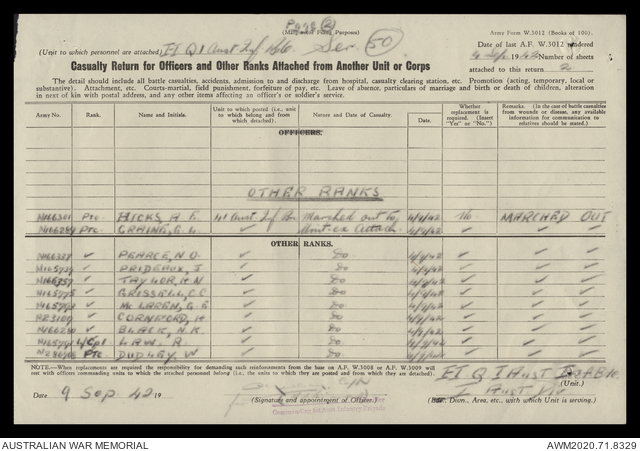 Page (2)
Army Form W.3012 (Books of 100).
(Unit to which personnel are attached)
Ser. 50
Date of last A.F. W.3012 rendered
4 Sep. 1942 Number of sheets
attached to this return 2
Casualty Return for Officers and Other Ranks Attached from Another Unit or Corps
The detail should include all battle casualties, accidents, admission to and discharge from hospital, casualty clearing station, etc. Promotion (acting, temporary, local or
substantive). Attachment, etc. Courts-martial, field punishment, forfeiture of pay, etc. Leave of absence, particulars of marriage and birth or death of children, alteration
in next of kin with postal address, and any other items affecting an officer's or soldier's service.
Army No. Rank. Name and Initials. Unit to which posted (i.e., unit to which belong and from which detached). Nature and Date of Casualty. Date. Whether replacement is required. (Insert "Yes" or "No.") Remarks. (In the case of battle casualties from wounds or disease, any available information for communication to relatives should be stated.)
OFFICERS.
OTHER RANKS
Pte. HICKS, A. E. 41 Aust Inf Bn Marched out to 4/9/42 No MARCHED OUT
Pte. CRAINE, G. L. ✓ Unit ex Attach 4/9/42 ✓ ✓ ✓
OTHER RANKS.
✓ PEARCE, N. O. ✓ Do 4/9/42 ✓ ✓ ✓
✓ PRIDEAUX, J ✓ Do 4/9/42 ✓ ✓ ✓
✓ TAYLOR, H N ✓ Do 4/9/42 ✓ ✓ ✓
✓ GRISSELL, C C ✓ Do 4/9/42 ✓ ✓ ✓
✓ McLAREN, G. E ✓ Do 4/9/42 ✓ ✓ ✓
✓ CORNFORD, H ✓ Do 4/9/42 ✓ ✓ ✓
✓ BLACK, N. K. ✓ Do 4/9/42 ✓ ✓ ✓
L/Cpl LAW, R. ✓ Do 4/9/42 ✓ ✓ ✓
Pte. DUDLEY, W ✓ Do 4/9/42 ✓ ✓ ✓
NOTE.—When replacements are required the responsibility for demanding such reinforcements from the base on A.F. W.3008 or A.F. W.3009 will
rest with officers commanding units to which the attached personnel belong (i.e., unit to which they are posted and from which they are detached).
(Unit.)
1 Aust Div
Date 9 Sep 42 19
(Signature and appointment of Officer.)
Divn., Area, etc., with which Unit is serving.)
AUSTRALIAN WAR MEMORIAL
AWM2020.71.8329